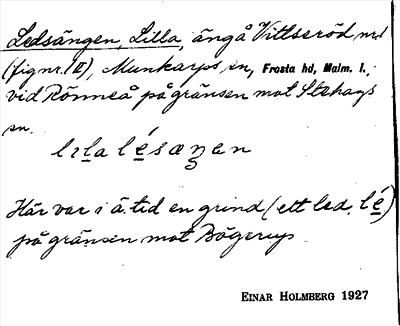 Ledsängen, Lilla, äng å Vittseröd nr 1
(fig nr. II), Munkarps sn, Frosta hd, Malm. l.,
vid Rönneå på gränsen mot Stehags
sn.
lıla lésæŋen
Här var i ä. tid en grind (ett led, lé)
på gränsen mot Bögerup
EINAR HOLMBERG 1927